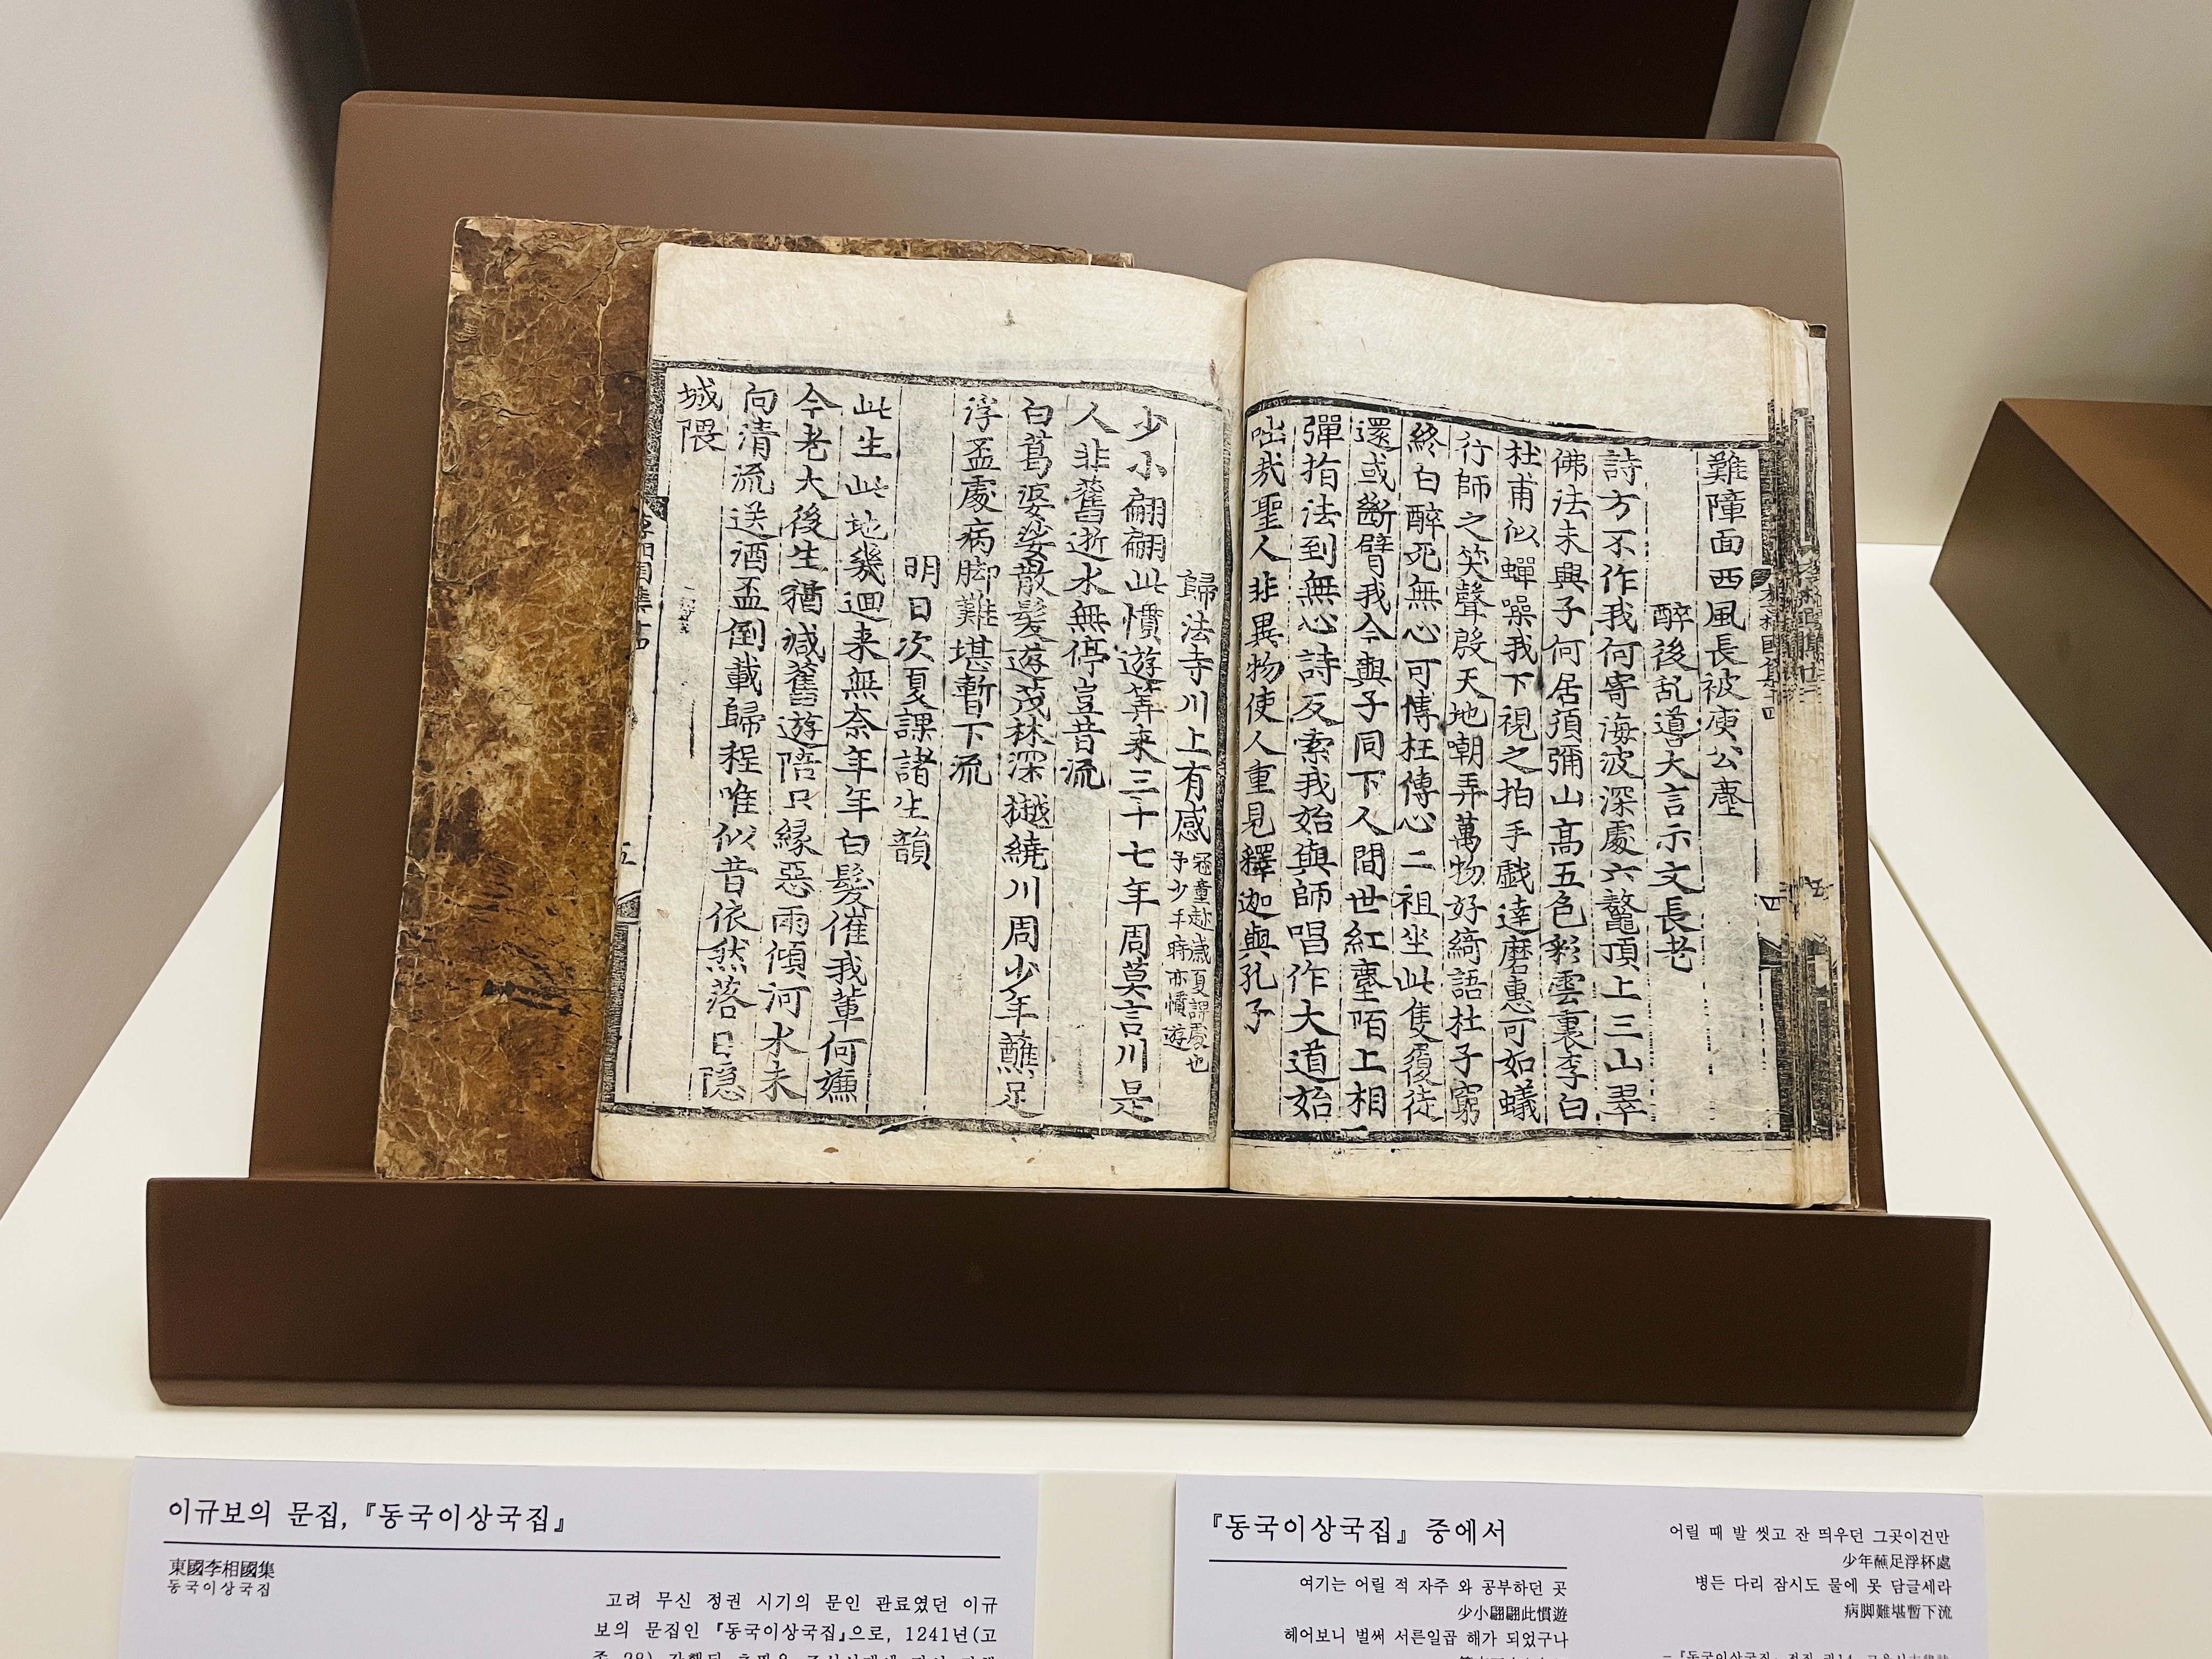 難障面西風長被庾公塵
醉後乱導大言示文長老
詩方不作我何寄海波深處六鼇頂上三山翠
佛法未興子何居須彌山高五色彩雲裏李白
杜甫似蟬噪我下視之拍手戱達磨惠可如蟻
行師之笑聲殷天地嘲弄萬物好綺語杜子窮
終白醉死無心可傳枉傳心二祖坐此隻履徒
還或斷臂我今與子同下人間世紅塵陌上相一
彈指法到無心詩反索我始與師唱作大道始
咄㢤聖人非異物使人重見釋迦與孔子
歸法寺川上有感
冠童赴歲夏課處也
予少年時亦慣遊
少小翩翩此慣遊筭来三十七年周莫言川是
人非舊逝水無停豈昔流
白葛婆娑散髮遊茂林深樾繞川周少年蘸足
浮盃處病脚難堪暫下流
明日次夏課諸生韻
此生此地幾迴来無奈年年白髮催我輩何嫌
今老大後生猶減舊遊陪只緣惡雨傾河水未
向清流送酒盃倒載歸程唯似昔依然落日隱
城隈
五
이규보의 문집, 『동국이상국집』
東國李相國集
동국이상국집
고려 무신 정권 시기의 문인 관료였던 이규
보의 문집인 『동국이상국집』으로, 1241년(고
『동국이상국집』 중에서
여기는 어릴 적 자주 와 공부하던 곳
少小翩翩此慣遊
헤어보니 벌써 서른일곱 해가 되었구나
어릴 때 발 씻고 잔 띄우던 그곳이건만
少年蘸足浮杯處
병든 다리 잠시도 물에 못 담글세라
病脚難堪暫下流